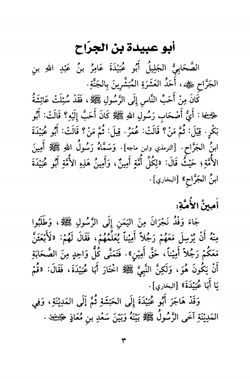 أبو عبيدة بن الجراح
الصَّحَابِيُّ الجَلِيلُ أَبُو عُبَيْدَةَ عَامِرُ بنُ عَبْدِ اللهِ بنِ
الجَرَّاحِ ﷺ، أَحَدُ العَشَرَةِ المُبَشَّرِينَ بِالجَنَّةِ.
كَانَ مِنْ أَحَبِّ النَّاسِ إِلَى الرَّسُولِ ﷺ، فَقَدْ سُئِلَتْ عَائِشَةُ
: أَيُّ أَصْحَابِ رَسُولِ اللهِ ﷺ كَانَ أَحَبَّ إِلَيْهِ؟ قَالَتْ: أَبُو
بَكْرٍ. قِيلَ: ثُمَّ مَنْ؟ قَالَتْ: عُمَرُ. قِيلَ: ثُمَّ مَنْ؟ قَالَتْ: أَبُو عُبَيْدَةَ
ابنُ الجَرَّاحِ. [الترمذي وابن ماجه]. وَسَمَّاهُ رَسُولُ اللهِ ﷺ أَمِينَ
الأُمَّةِ؛ حَيْثُ قَالَ: «لِكُلِّ أُمَّةٍ أَمِينٌ، وَأَمِينُ هَذِهِ الأُمَّةِ أَبُو عُبَيْدَةَ
ابنُ الجَرَّاحِ» [البخاري].
أَمِينُ الأُمَّةِ:
جَاءَ وَفْدُ نَجْرَانَ مِنَ اليَمَنِ إِلَى الرَّسُولِ ﷺ، وَطَلَبُوا
مِنْهُ أَنْ يُرْسِلَ مَعَهُمْ رَجُلاً أَمِيناً يُعَلِّمُهُمْ، فَقَالَ لَهُمْ: «لأَبْعَثَنَّ
مَعَكُمْ رَجُلاً أَمِيناً، حَقَّ أَمِينٍ»، فَتَمَنَّى كُلُّ وَاحِدٍ مِنَ الصَّحَابَةِ
أَنْ يَكُونَ هُوَ، وَلَكِنَّ النَّبِيَّ ﷺ اخْتَارَ أَبَا عُبَيْدَةَ، فَقَالَ: «قُمْ
يَا أَبَا عُبَيْدَةَ» [البخاري].
وَقَدْ هَاجَرَ أَبُو عُبَيْدَةَ إِلَى الحَبَشَةِ ثُمَّ إِلَى المَدِينَةِ، وَفِي
المَدِينَةِ آخَى الرَّسُولُ ﷺ بَيْنَهُ وَبَيْنَ سَعْدِ بنِ مُعَاذٍ
٣